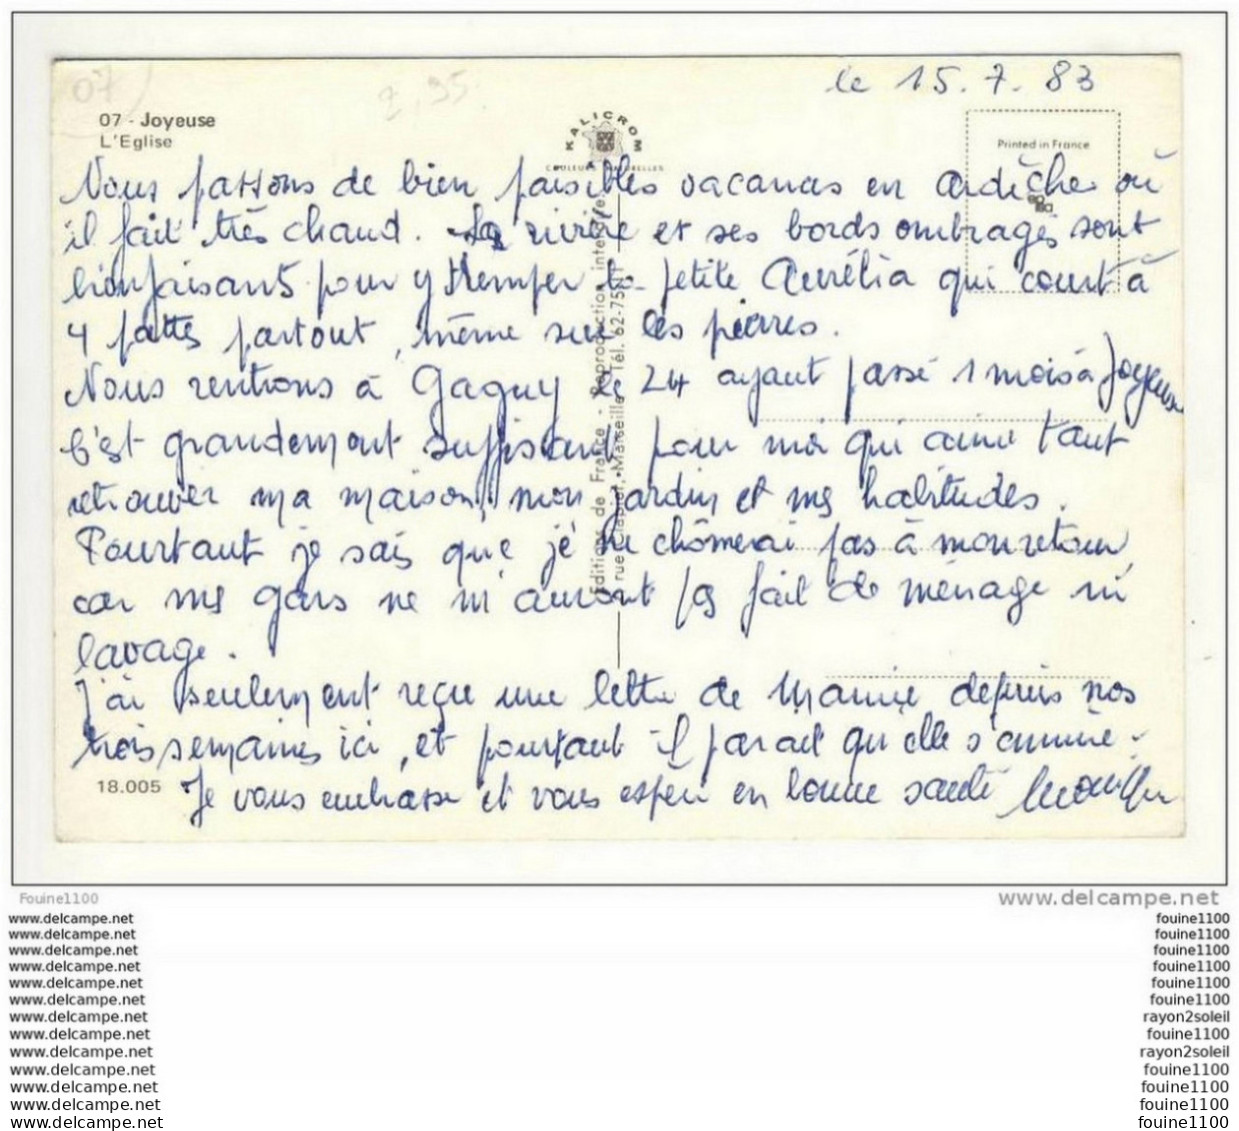 07
2,95
le 15.7.83
07 - Joyeuse
L'Eglise
KALICROM
COULEURS NATURELLES
Printed in France
Nous passons de bien paisibles vacances en Ardèche où
il fait très chaud. La rivière et ses bords ombragés sont
bienfaisants pour y tremper la petite Aurélia qui court à
4 pattes partout, même sur les pierres.
Nous rentrons à Gagny le 24 ayant passé 1 mois à Joyeuse
C'est grandement suffisant pour moi qui aime tant
retrouver ma maison, mon jardin et mes habitudes.
Pourtant je sais que je ne chômerai pas à mon retour
car mes gars ne m'auront pas fait de ménage ni
lavage.
J'ai seulement reçu une lettre de Mamie depuis nos
trois semaines ici, et pourtant il parait qu'elle s'ennuie.
Je vous embrasse et vous espère en bonne santé
Editions de France - Reproduction interdite
Marseille Tél. 62-75
18.005
Fouine1100
www.delcampe.net
www.delcampe.net
fouine1100
www.delcampe.net
fouine1100
www.delcampe.net
fouine1100
www.delcampe.net
fouine1100
www.delcampe.net
fouine1100
www.delcampe.net
fouine1100
www.delcampe.net
rayon2soleil
www.delcampe.net
fouine1100
www.delcampe.net
rayon2soleil
www.delcampe.net
fouine1100
www.delcampe.net
fouine1100
www.delcampe.net
fouine1100
www.delcampe.net
fouine1100